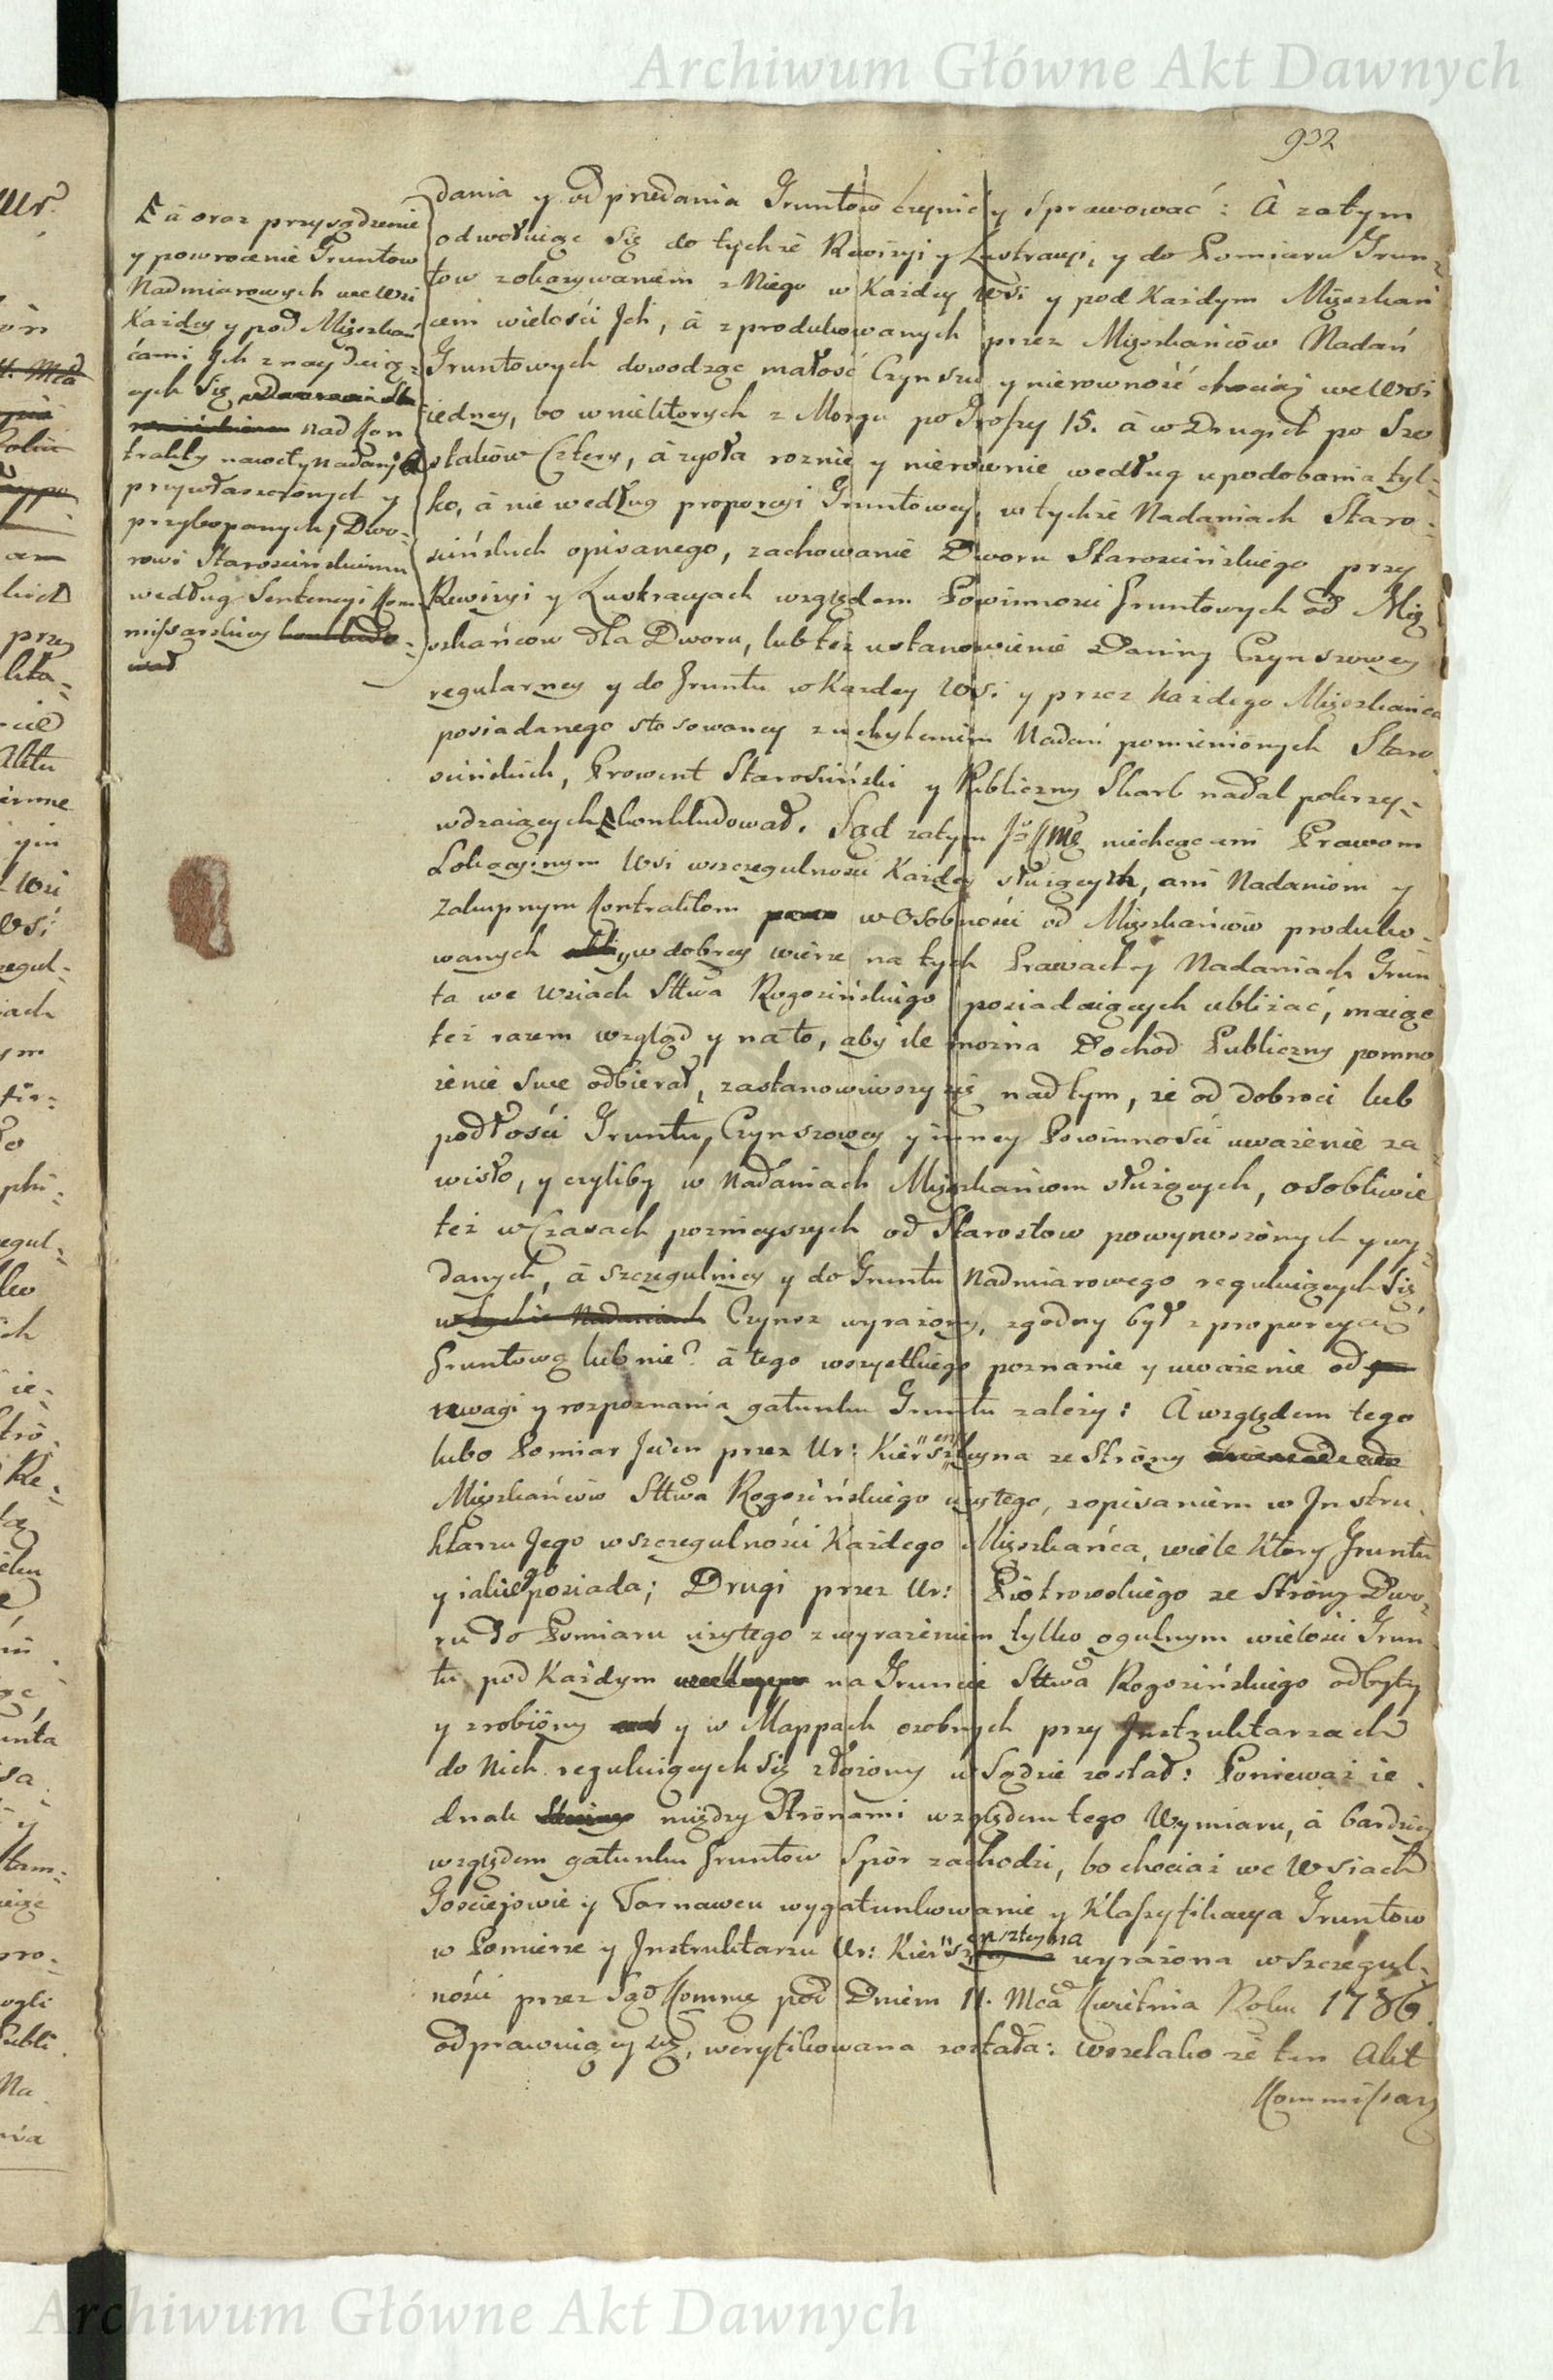 Archiwum Główne Akt Dawnych
932
à oraz przysądzenie
y powrocenie Gruntow
Nadmiarowych we Wsi
Każdey y pod Mięszkań
cami Ich znayduią-
cych się
nad Kon
trakty nawet y Nadania
przywłaszczonych y
przykopanych, Dwo-
rowi Starościńskiemu
według Sentencyi Kom-
missarskiey
dania y odprzedania Gruntow czynić y sprawować: à zatym
odwołuiąc się do tychże Rewizyi y Lustracyi, y do Pomiaru Grun-
tow z okazywaniem z Niego w Każdey Wsi y pod Każdym Mięszkań
cem wielości Ich, à z produkowanych przez Mięszkańców Nadań
Gruntowych dowodząc małość Czynszu y nierowność chociay we Wsi
iedney, bo w niektorych z Morgu po Groszy 15. à w Drugich po Szo
stakow Cztery, à zgoła roznie y nierownie według upodobania tyl-
ko, à nie według proporcyi Gruntowey, w tychże Nadaniach Staro-
scińskich opisanego, zachowanie Dworu Starościńskiego przy
Rewizyi y Lustracyach względem Powinnosci Gruntowych od Mię
szkańcow dla Dworu, lub też ustanowienie Daniny Czynszowey
regularney y do Gruntu w Kazdey Wsi y przez każdego Mięszkańca
posiadanego stosowaney z uchyleniem Nadań pomienionych Staro
scińskich, Prowent Starościński y Publiczny Skarb nadal pokrzy-
wdzaiących konkludował. Sąd zatym niechcąc ani Prawom
Lokacyinym Wsi w szczegulności Każdey służących, ani Nadaniom y
Zakupnym Kontraktom w osobności od Mięszkańców produko-
wanych y w dobrey wierze na tych Prawach y Nadaniach Grun
ta we Wsiach Sttwa Rogozińskiego posiadaiących ubliżać, maiąc
też razem wzgląd y na to, aby ile można Dochod Publiczny pomno
żenie swe odbierał, zastanowiwszy się nad tym, że od dobroci lub
podłości Gruntu, Czynszowey y inney Powinności uważenie za-
wisło, y czyliby w Nadaniach Mięszkańcom służących, osobliwie
też w Czasach poznieyszych od Starostow powynoszonych y wy-
danych, à szczegulniey y do Gruntu Nadmiarowego reguluiących się
w tychże Nadaniach Czynsz wyrażony, zgodny był z proporcyą
Gruntową lub nie? à tego wszystkiego poznanie y uważenie od
uwagi y rozpoznania gatunku Gruntu zależy: A względem tego
lubo Pomiar Jeden przez Ur: ze Strony
Mięszkańców Sttwa Rogozińskiego użytego, z opisaniem w Instru-
ktarzu Jego w szczegulności Każdego Mięszkańca, wiele Ktory Gruntu
y iakiego posiada; Drugi przez Ur: Piotrowskiego ze Strony Dwo-
ru do Pomiaru użytego z wyrażeniem tylko ogulnym wielości Grun
tu pod Każdym na Gruncie Sttwa Rogozińskiego odbyty
y zrobiony y w Mappach osobnych przy Instruktarzach
do Nich reguluiących się złożony w Sądzie został: Ponieważ ie-
dnak między Stronami względem tego Wymiaru, à bardziey
względem gatunku Gruntow Spór zachodzi, bo chociaż we Wsiach
Gościejowie y Tarnawcu wygatunkowanie y Klassyfikacya Gruntow
w Pomierze y Instruktarzu Ur: wyrażona w szczegul-
ności przez Sąd Kommę pod Dniem 11. Mca Kwietnia Roku 1786
odprawuiący się, weryfikowana została: wszelako że ten Akt
Kommissary
Archiwum Główne Akt Dawnych